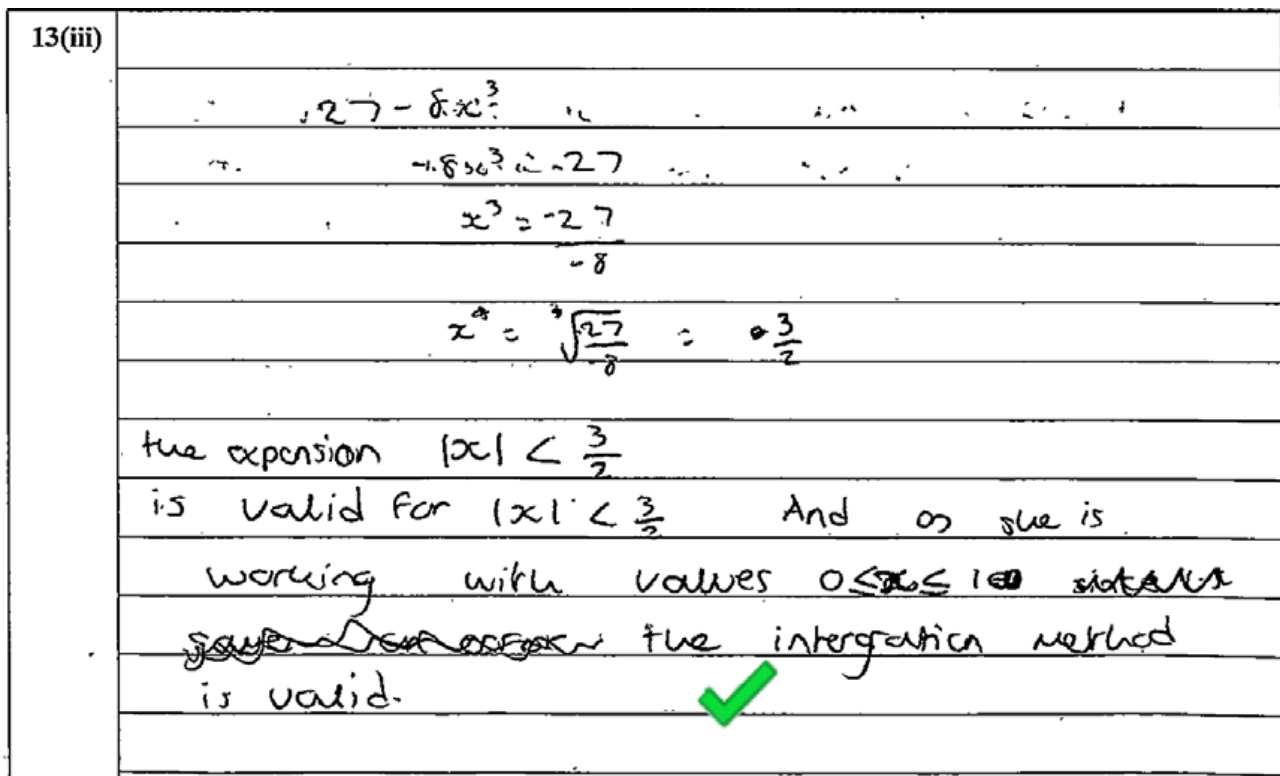 13(iii)
27 - 8x³
-8x³ = -27
x³ = -27
-8
x = ³√27/8 = 3/2
the expansion |x| < 3/2
is valid for |x| < 3/2 And as she is
working with values 0≤x≤1
the intergration method
is valid.